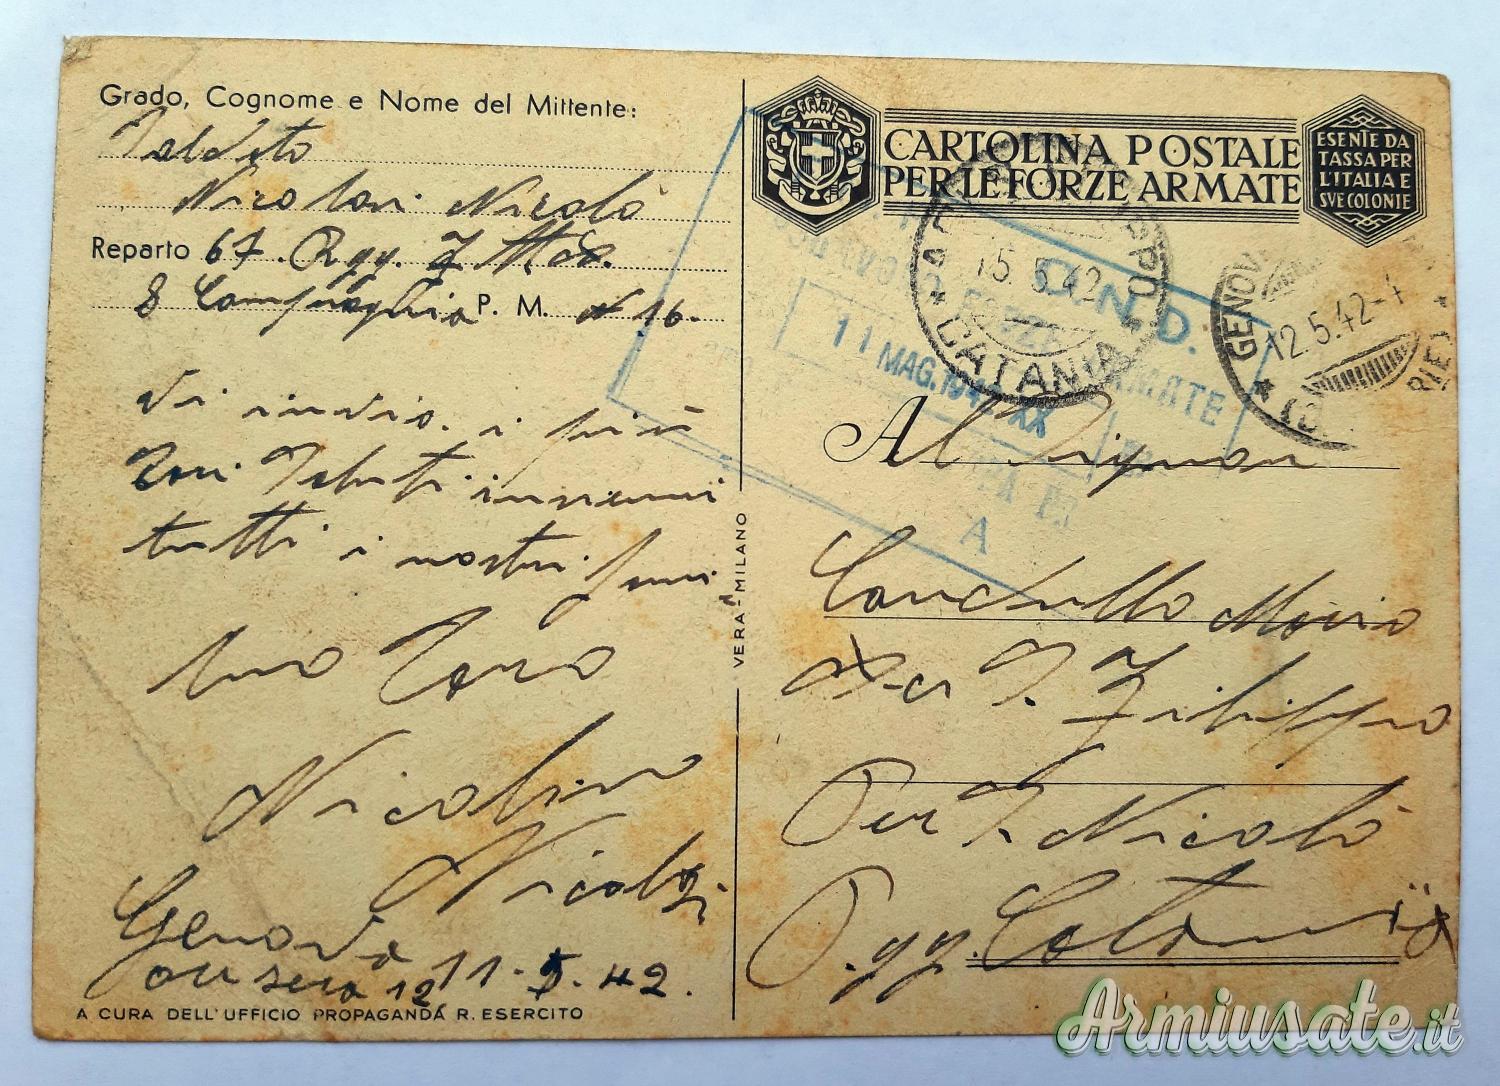 Grado, Cognome e Nome del Mittente:
Soldato
Nicolosi Nicolò
Reparto 67. Rgg. F
8 Compagnia P. M. N 16.
Vi invio. i più
cari saluti insiemi
tutti i nostri fami
Nicolino
Nicolosi
Genova 11-5-42.
ore sera 12
A CURA DELL'UFFICIO PROPAGANDA R. ESERCITO
VERA-MILANO
CARTOLINA POSTALE
PER LE FORZE ARMATE
ESENTE DA
TASSA PER
L'ITALIA E
SVE COLONIE
15.5.42
CATANIA
GENOVA
12.5.42-4
O.N.D.
FORZE ARMATE
11 MAG.1942 XX
A
Al Signor
Mario
Per S. Filippo
Per S. Nicolò
Pgg. Catania
Armiusate.it